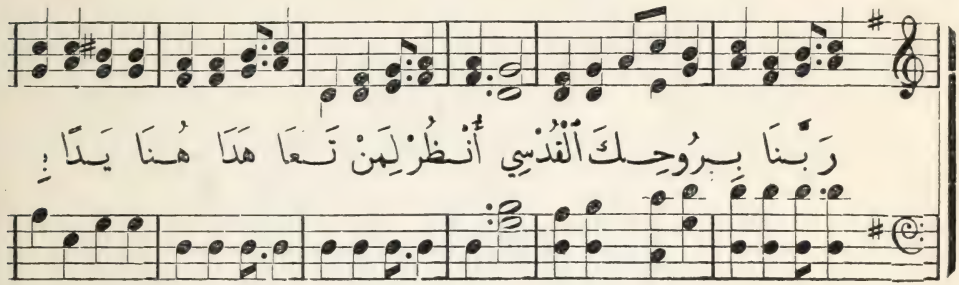 رَبَّنَا بِرُوحِكَ ٱلْقُدْسِي أُنْظُرْ لِمَنْ تَعَا هَدَا هُنَا يَدًا :